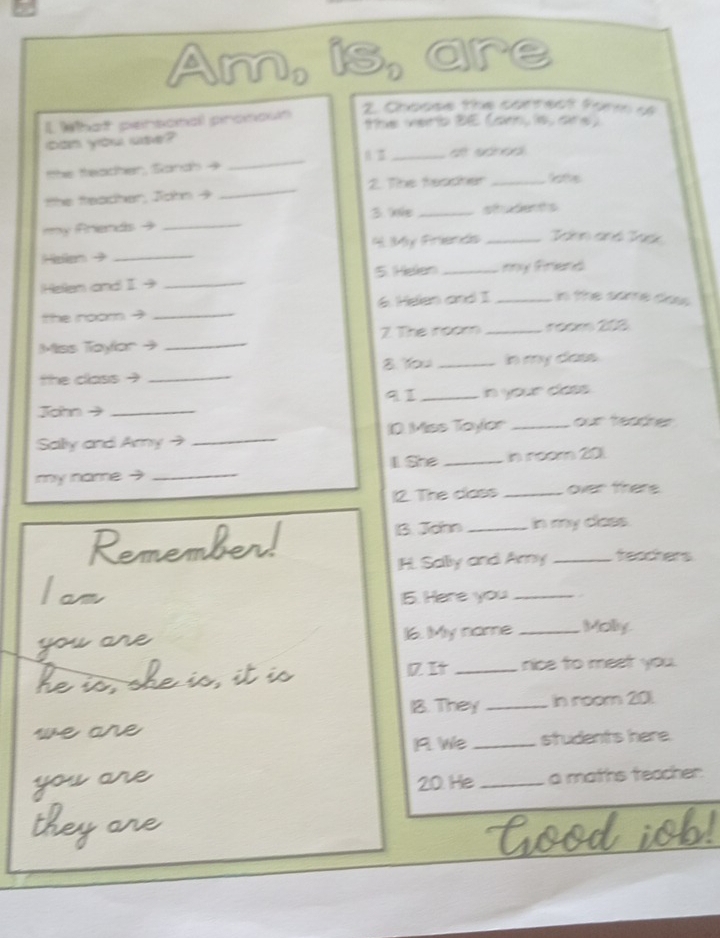 Am, is, are
1. What personal pronoun
can you use?
the teacher, Sarah → ______
the teacher, John → ______
my friends → ______
Helen → ______
Helen and I → ______
the room → ______
Miss Taylor → ______
the class → ______
John → ______
Sally and Amy → ______
my name → ______
Remember!
I am
you are
he is, she is, it is
we are
you are
they are
2. Choose the correct form of
the verb BE (am, is, are).
1. I ______ at school.
2. The teacher ______ late.
3. We ______ students.
4. My friends ______ John and Jack.
5. Helen ______ my friend.
6. Helen and I ______ in the same class.
7. The room ______ room 203.
8. You ______ in my class.
9. I ______ in your class.
10. Miss Taylor ______ our teacher.
11. She ______ in room 201.
12. The class ______ over there.
13. John ______ in my class.
14. Sally and Amy ______ teachers.
15. Here you ______.
16. My name ______ Molly.
17. It ______ nice to meet you.
18. They ______ in room 201.
19. We ______ students here.
20. He ______ a maths teacher.
Good job!